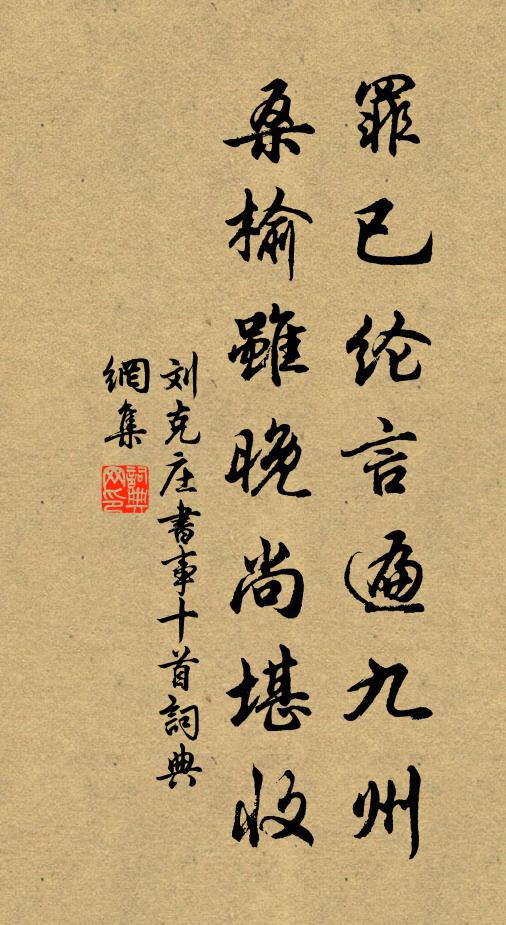 罪已纶言遍九州
桑榆雖晚尚堪收
刘克庄書事十首詞典
網集
詞典
网印